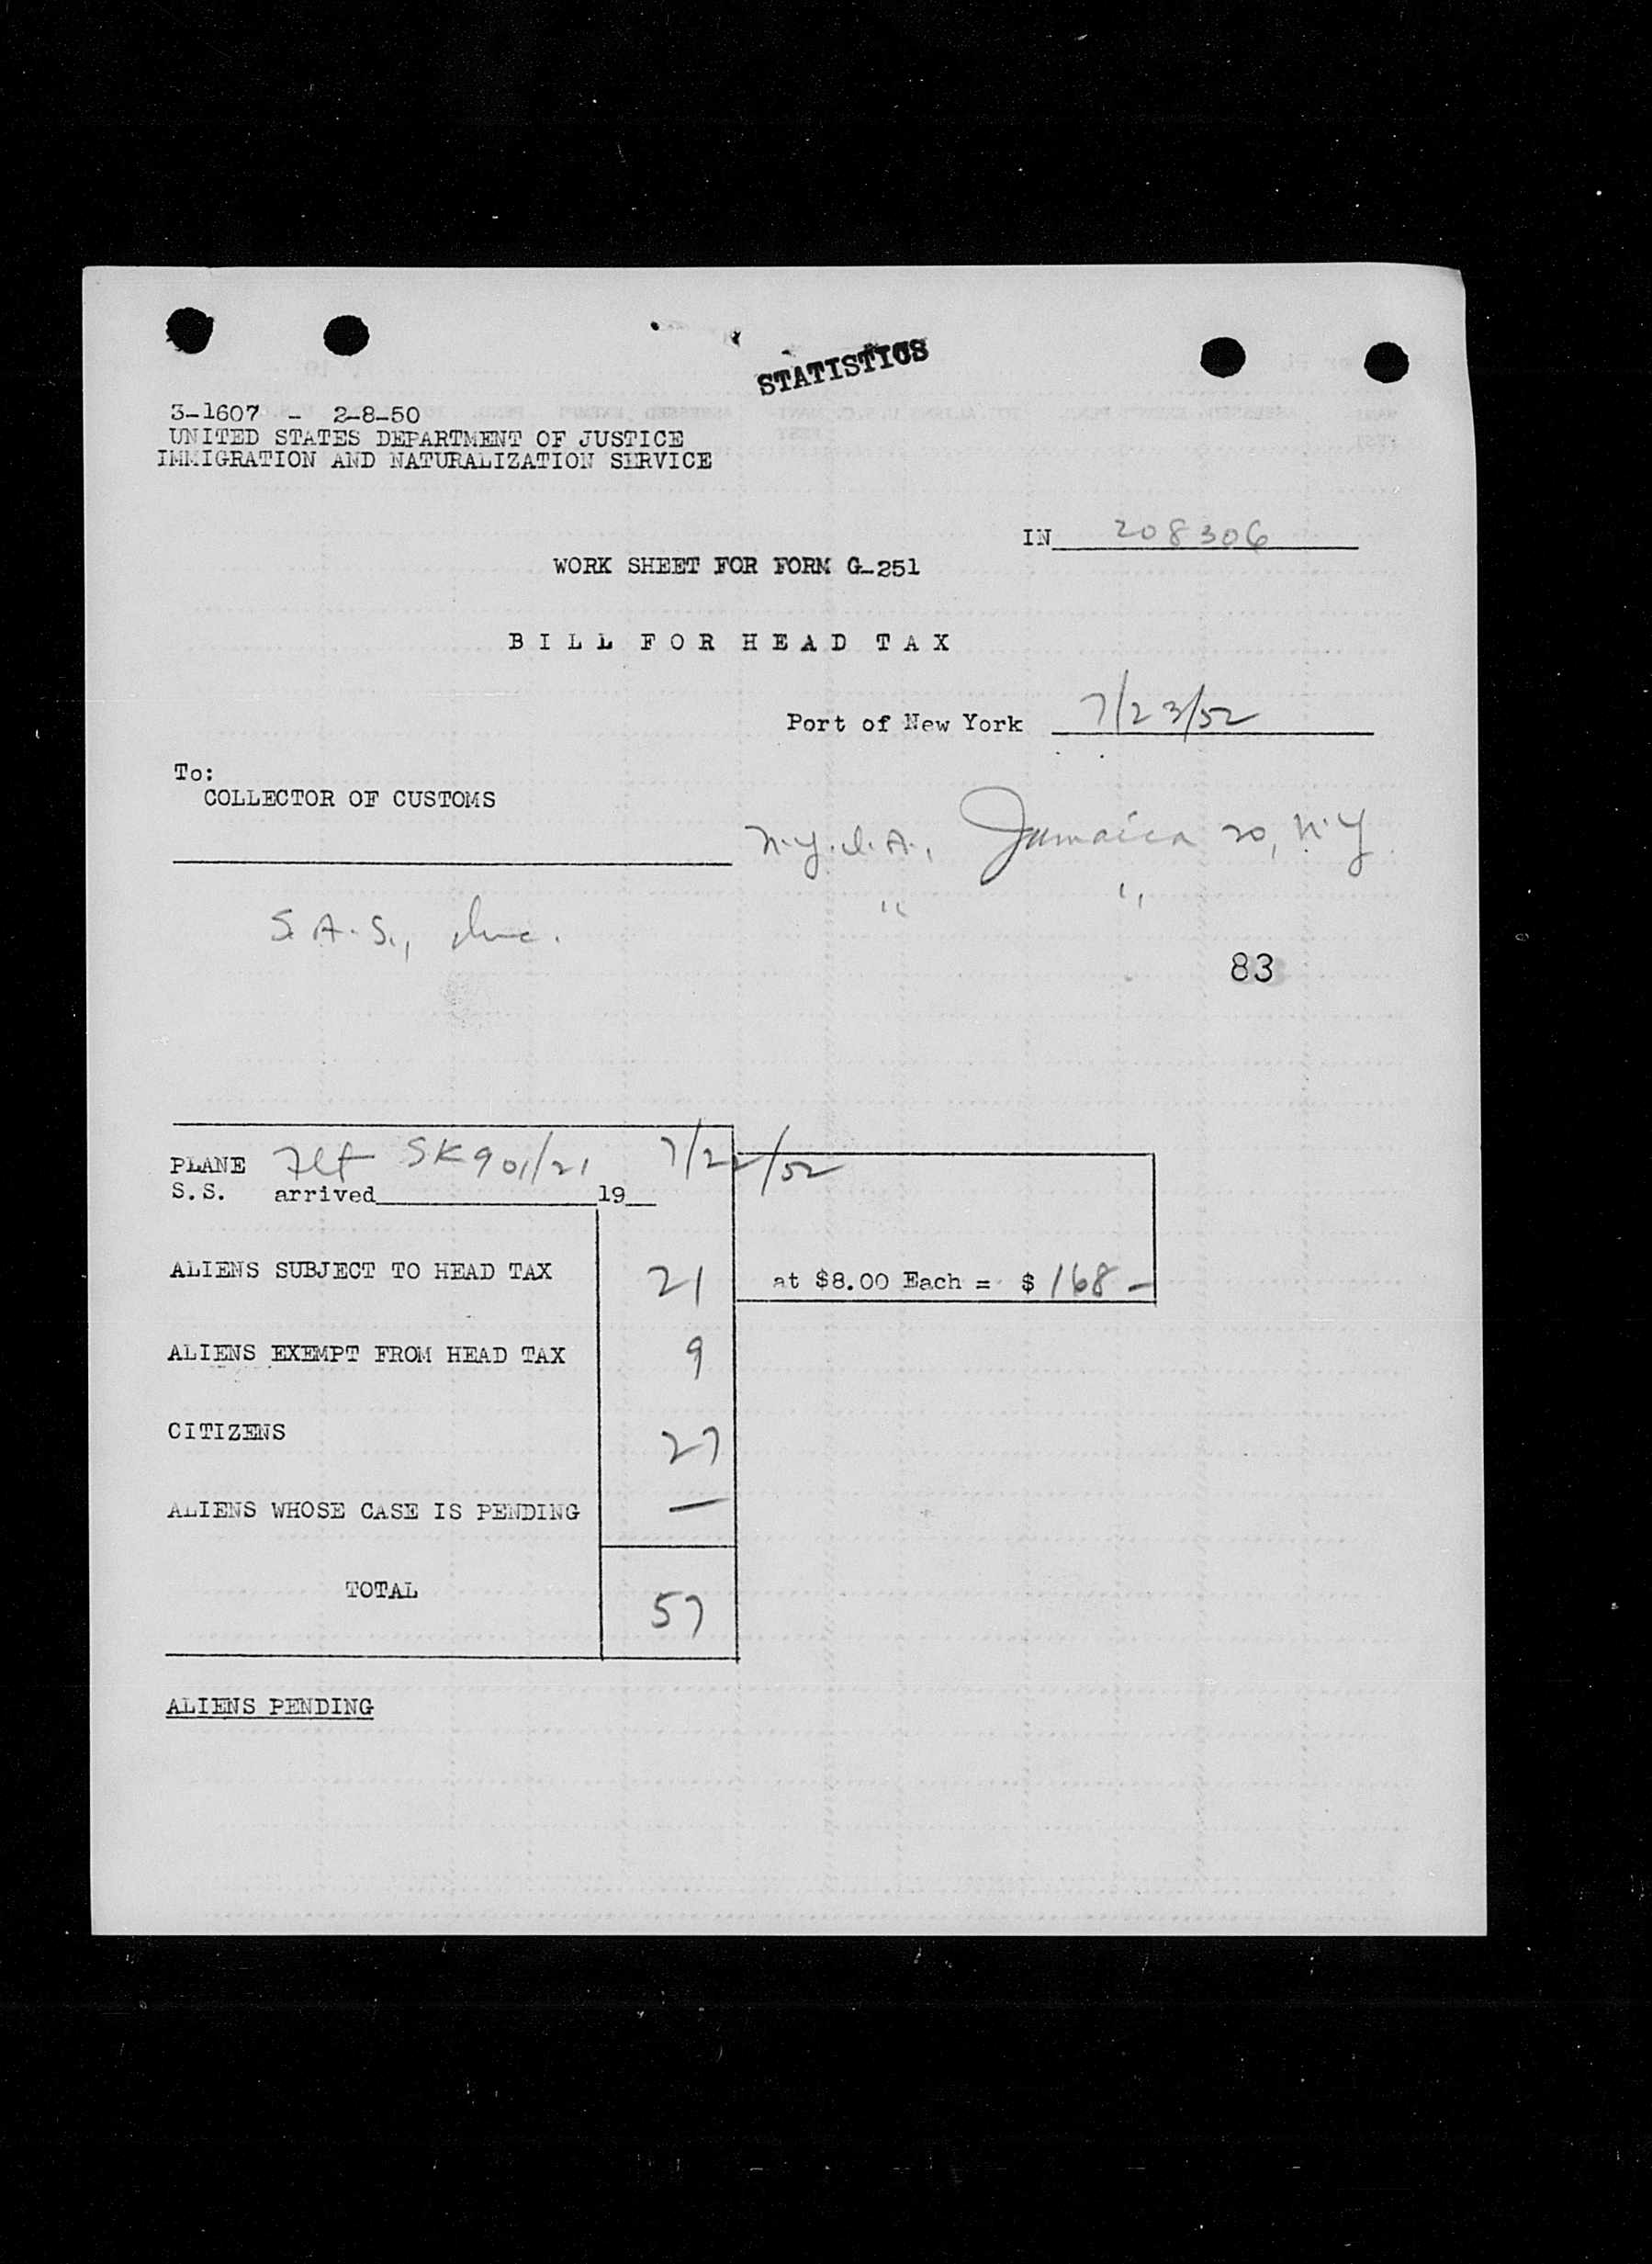 STATISTICS
3-1607 - 2-8-50
UNITED STATES DEPARTMENT OF JUSTICE
IMMIGRATION AND NATURALIZATION SERVICE
IN 208306
WORK SHEET FOR FORM G-251
BILL FOR HEAD TAX
Port of New York 7/23/52
To:
COLLECTOR OF CUSTOMS
N.Y.I.A., Jamaica 20, N.Y.
" "
S.A.S., Inc.
83
PLANE Flt SK901/21 7/22/52
S.S. arrived 19
ALIENS SUBJECT TO HEAD TAX 21 at $8.00 Each = $ 168 -
ALIENS EXEMPT FROM HEAD TAX 9
CITIZENS 27
ALIENS WHOSE CASE IS PENDING —
TOTAL 57
ALIENS PENDING